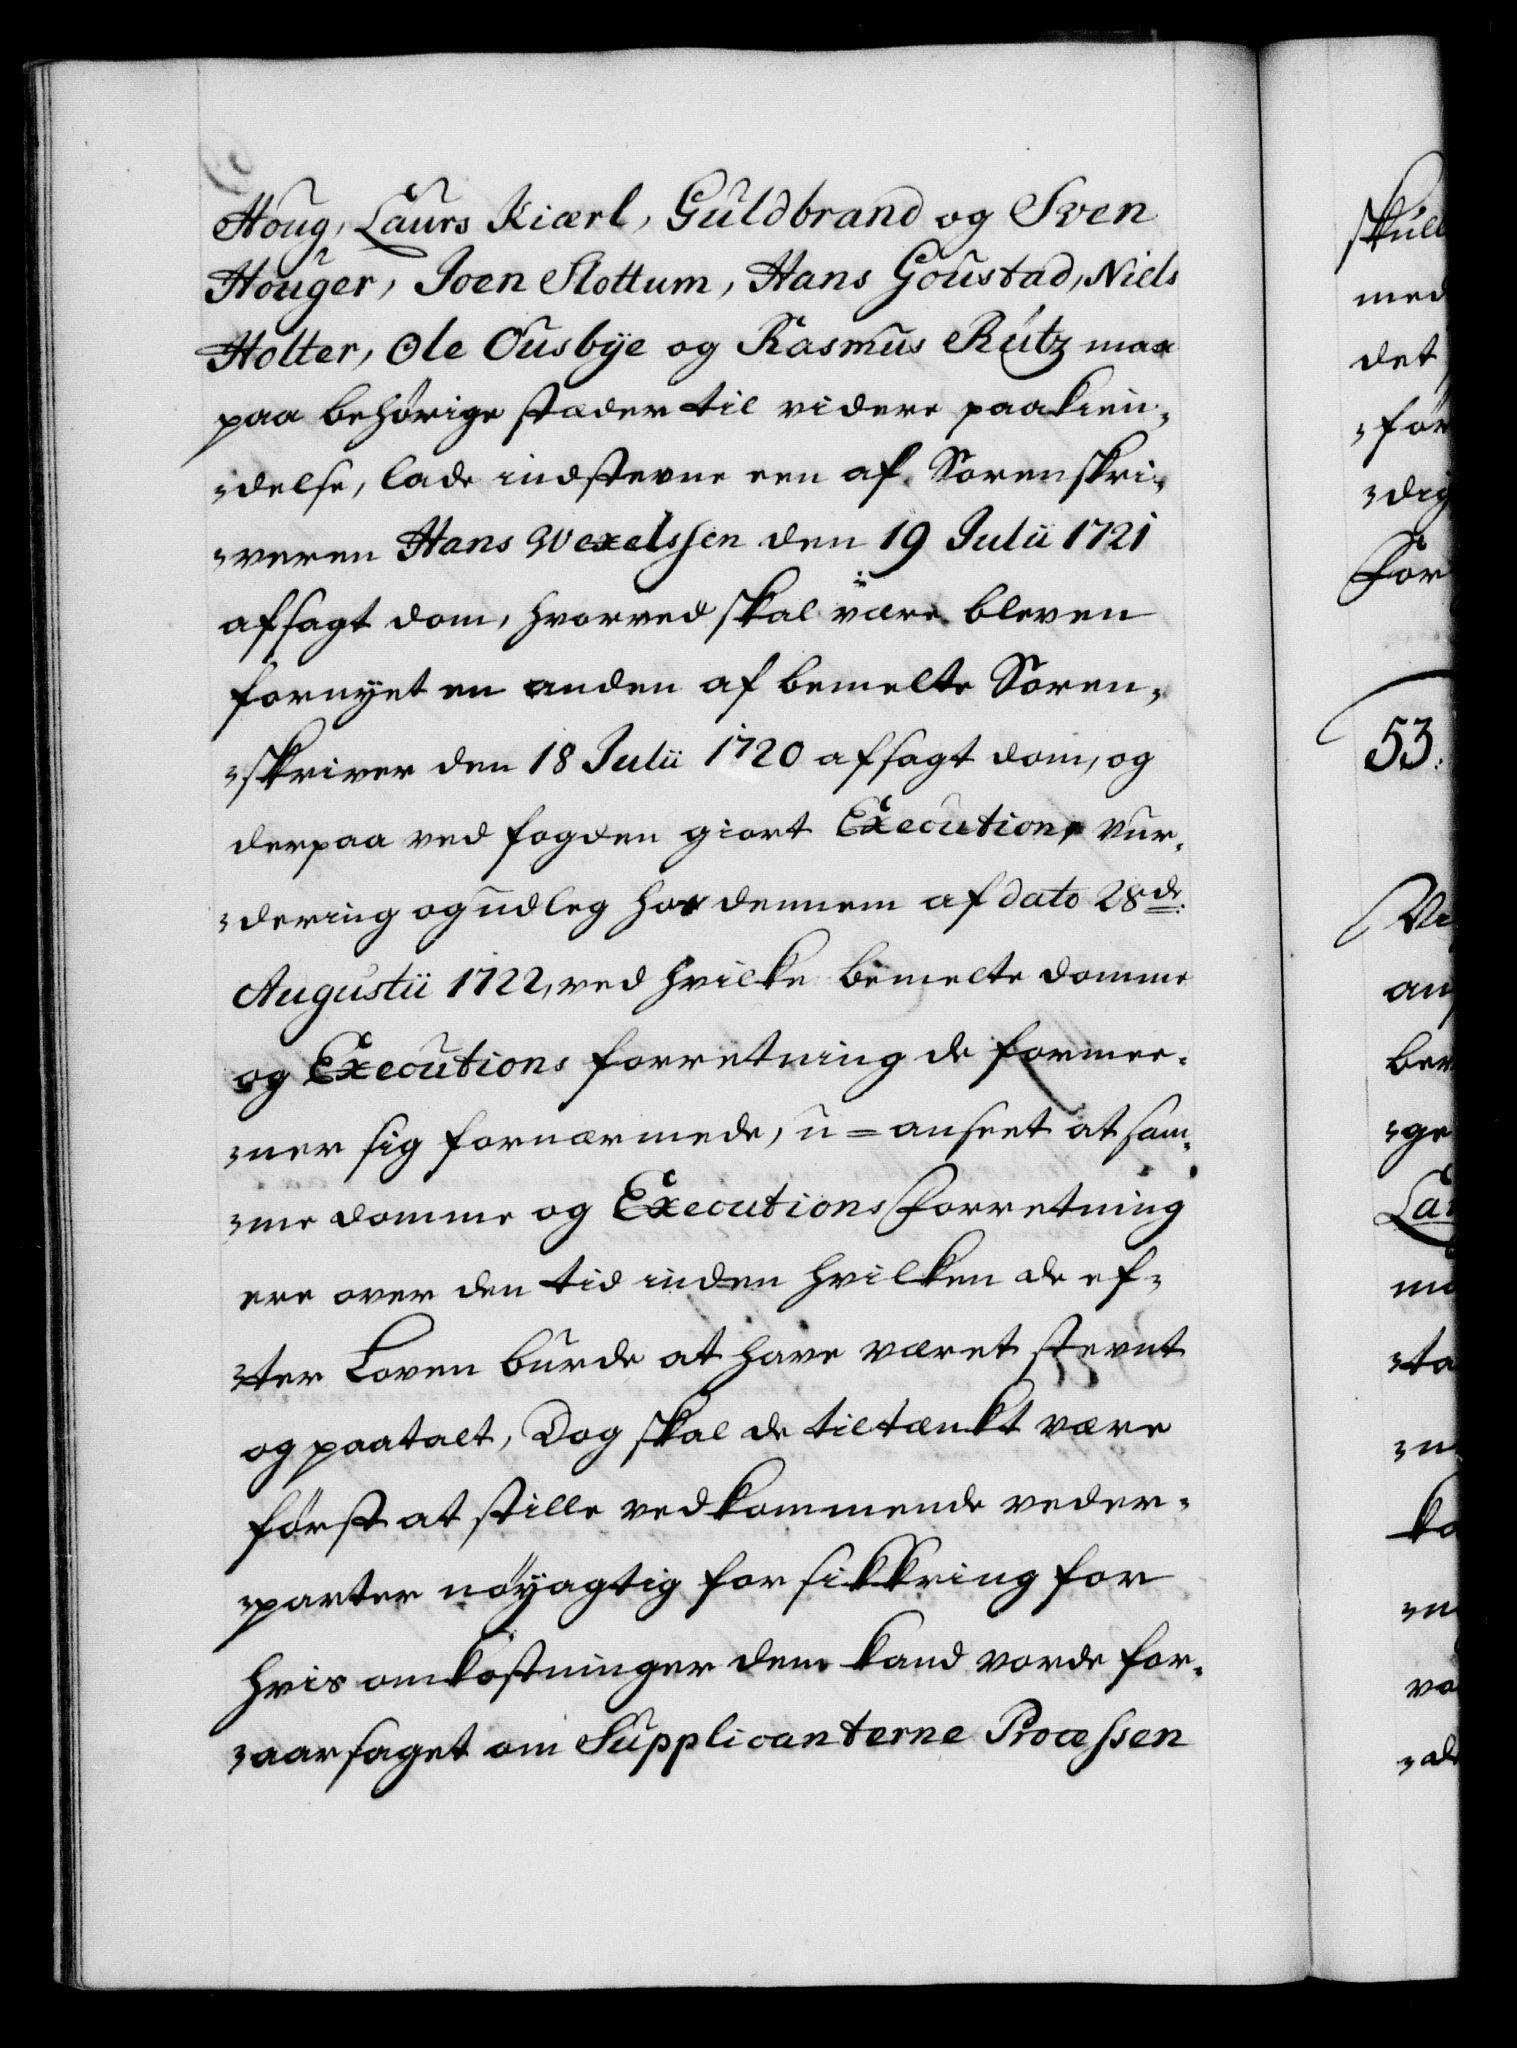 Houg, Laurs Kiærl, Guldbrand og Sven
Houger, Joen Slottum, Hans Goustad, Niels
Holter, Ole Ousbÿe og Rasmus Rutz maa
paa behörige stæder til videre paakien¬
¬delse, lade indstevne een af Sorenskri¬
¬veren Hans Wexelssen den 19 Julii 1721
afsagt dom, hvorved skal være bleven
fornyet en anden af bemelte Soren¬
¬skriver den 18 Julii 1720 afsagt dom, og
derpaa ved fogden giort Execution, vur¬
¬dering og udleg hos dennem af dato 28de:
Augustii 1722, ved hvilke bemelte domme
og Executions forretning de formee¬
¬ner sig fornærmede, u=anseet at sam¬
¬me domme og Executions Forretning
ere over den tid inden hvilken de ef¬
¬ter Loven burde at have været stevnt
og paatalt, Dog skal de tiltænkt være
först at stille vedkommende veder¬
¬parter nöÿagtig forsikkring for
hvis omkostninger dem kand vorde for¬
¬aarsaget om Supplicanterne Processen
skull
med
det
¬for
¬dig
For
53.
Vi
an
ber
¬ge
La
¬ta
ko